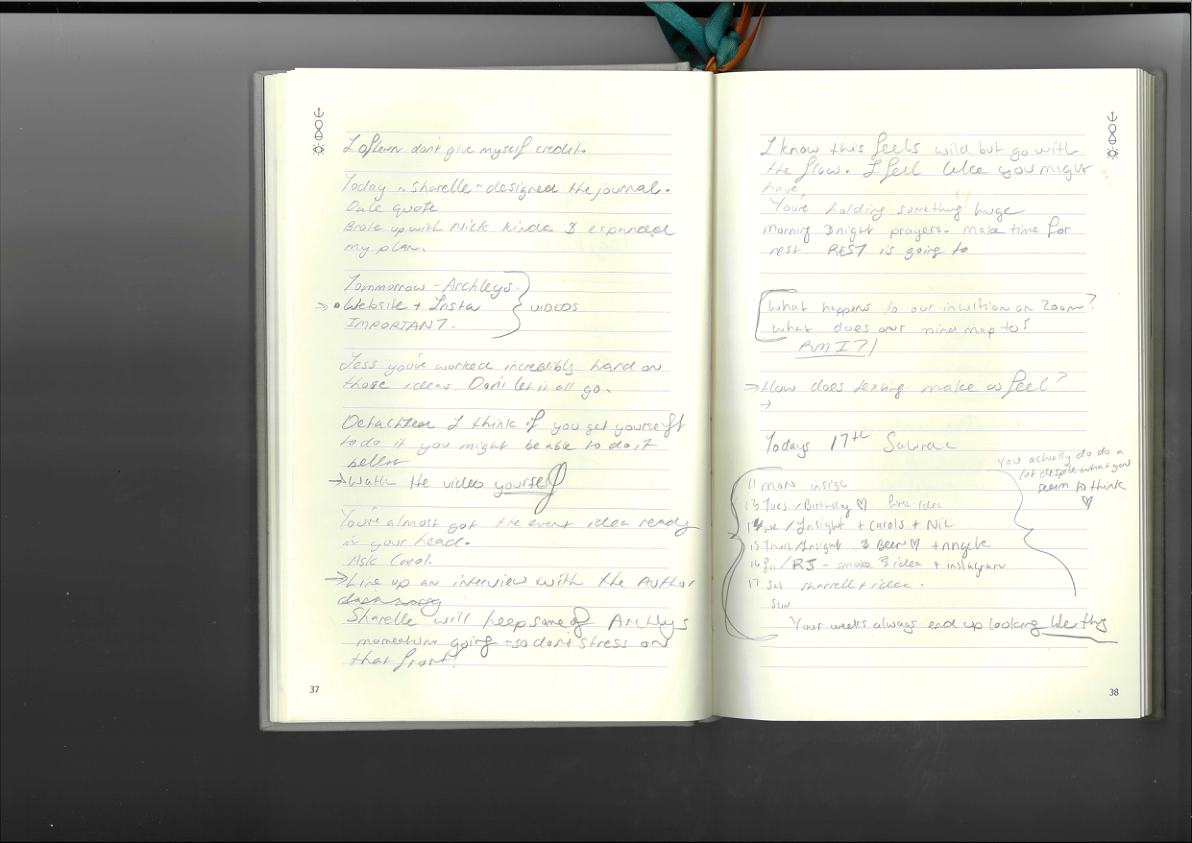 I often don't give myself credit.
Today - Sharelle - designed the journal.
Date quote
Broke up with Nick Kinda & expanded
my plan.
Tommorrow - Archleys.
→ • Website + Insta } VIDEOS
IMPORTANT.
Jess you've worked incredibly hard on
those ideas. Don't let it all go.
I think if you get yourself
to do it you might be able to do it
better
→ Watch the video yourself
You're almost got the event idea ready
in your head.
Ask Carol.
→ Line up an interview with the Author
Sharelle will keep some of Archleys
momentum going - so don't stress on
that front!
37
I know this feels wild but go with
the flow. I feel like you might
have
You're holding something huge
morning & night prayers. make time for
rest REST is going to
What happens to our intuition on Zoom?
What does our mind map to?
RMIT/
→ How does texting make us feel?
→
Todays 17th
You actually do do a
lot despite what you
seem to think
♡
11 mon insig
13 Tues / Birthday ♡ idea
14 we / Insight + Carols + Nic
15 Thurs / Insight & Beer ♡ + Angela
16 fri / RJ - smoke & idea + instagram
17 Sat sharrell + idea.
Sun
Your weeks always end up looking like this
38